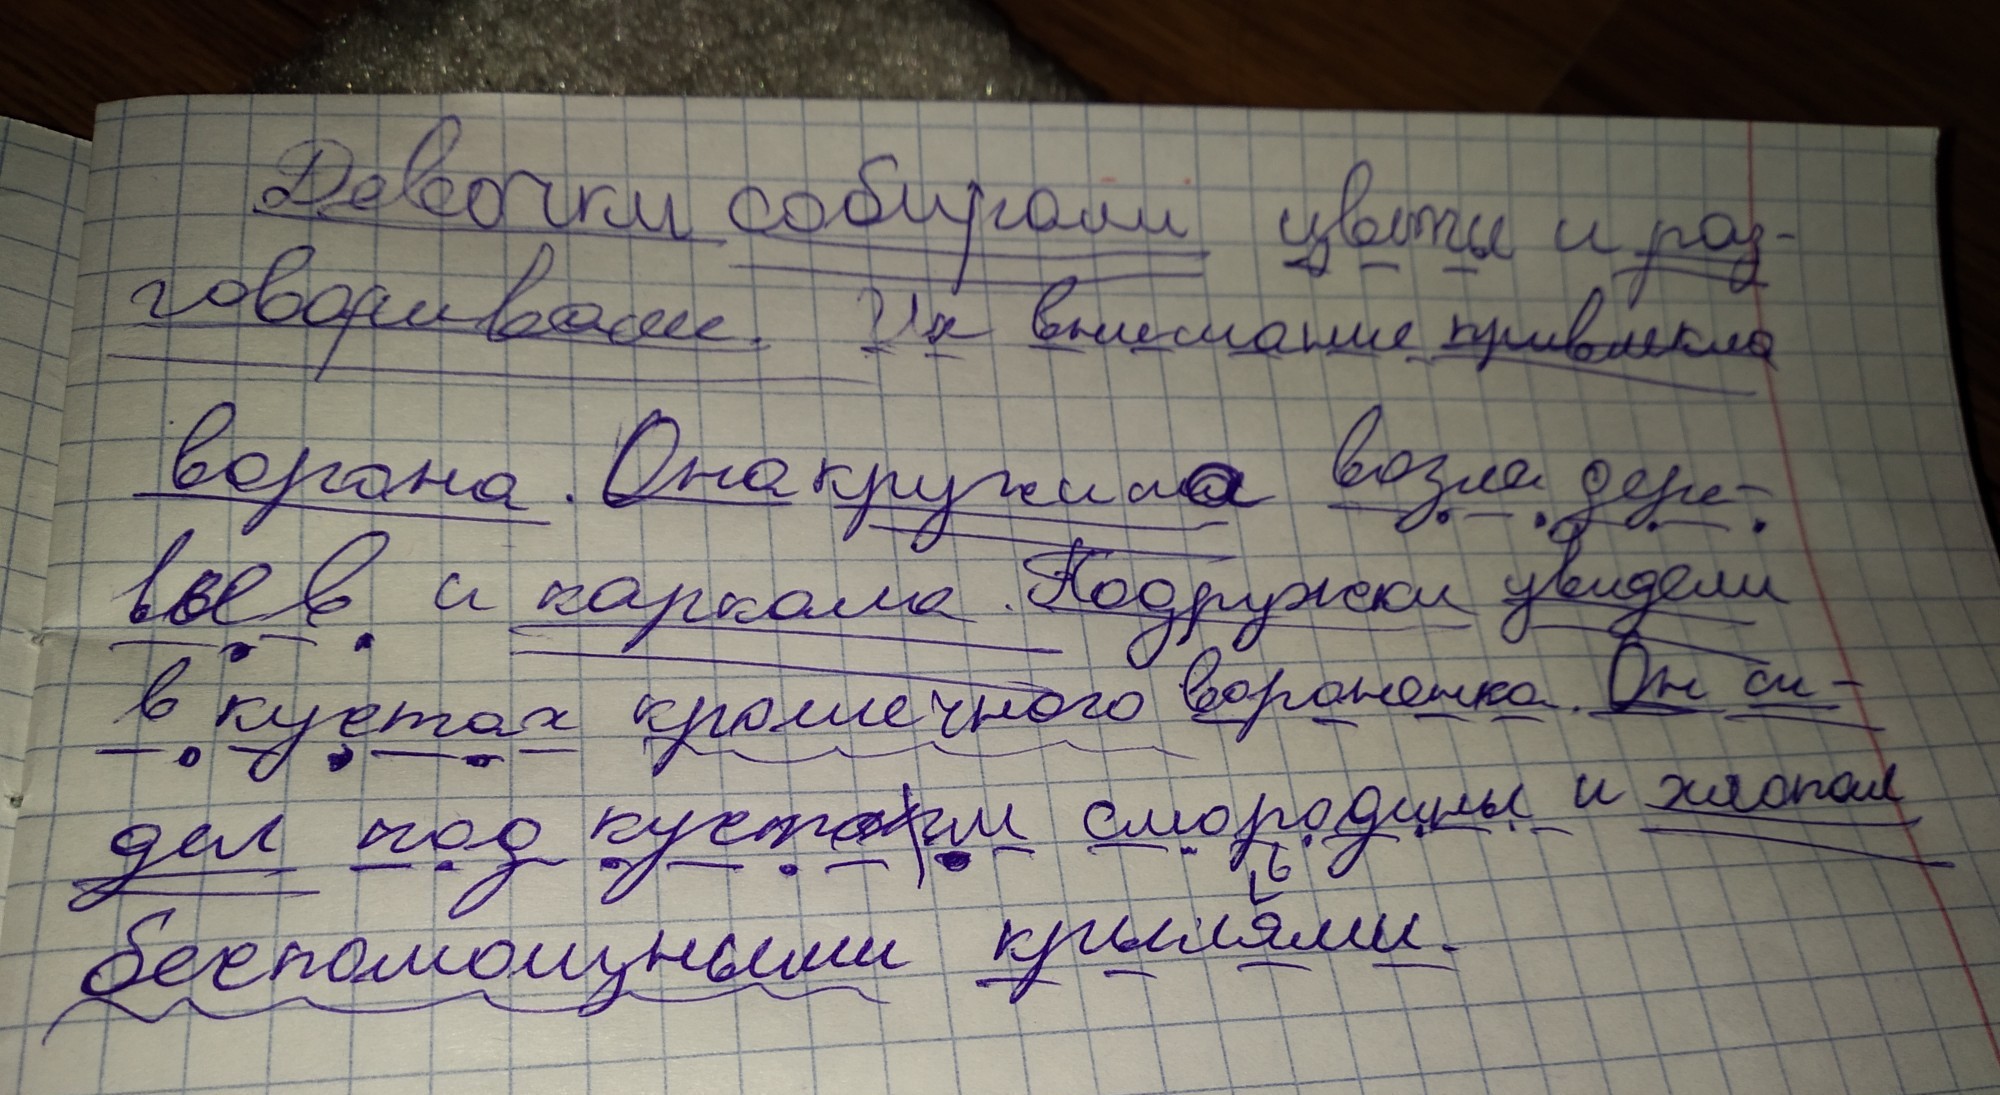 Девочки собирали цветы и раз-
говаривали. Их внимание привлекла
ворона. Она кружила возле дере-
вьев и каркала. Подружки увидели
в кустах крошечного вороненка. Он си-
дел под кустом смородины и хлопал
беспомощными крыльями.